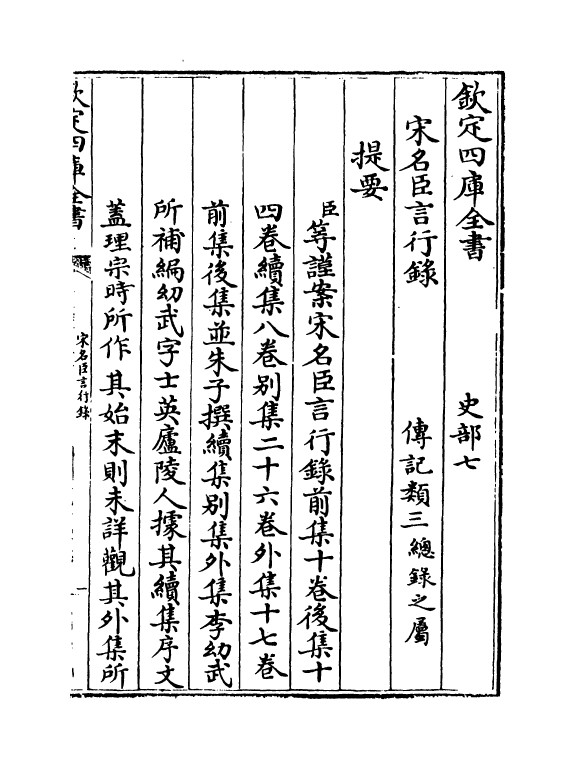 欽定四庫全書 史部七
宋名臣言行錄 傳記類三 總錄之屬
提要
臣等謹案宋名臣言行錄前集十卷後集十
四卷續集八卷別集二十六卷外集十七卷
前集後集並朱子撰續集別集外集李幼武
所補編幼武字士英廬陵人據其續集序文
蓋理宗時所作其始末則未詳觀其外集所
欽定四庫全書
宋名臣言行錄
一